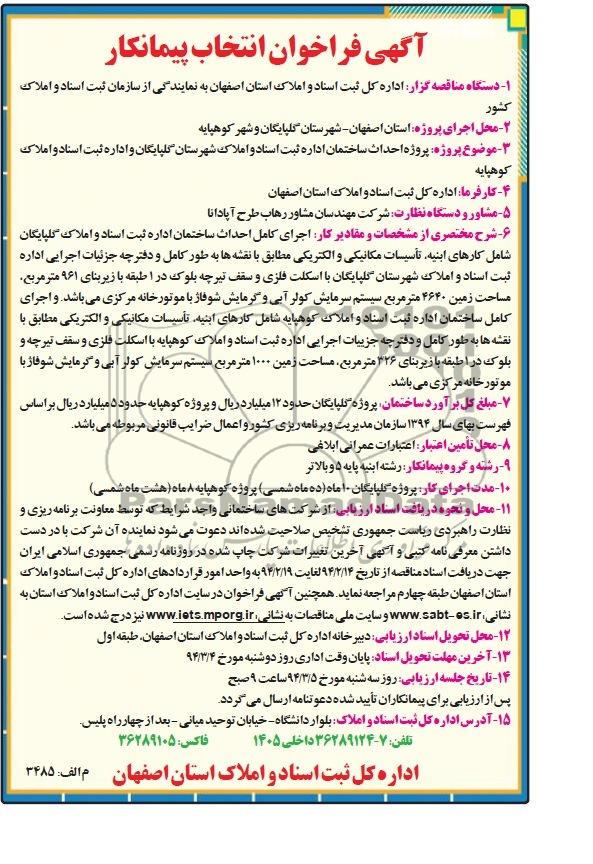 آگهی فراخوان انتخاب پیمانکار
۱- دستگاه مناقصه گزار: اداره کل ثبت اسناد و املاک استان اصفهان به نمایندگی از سازمان ثبت اسناد و املاک
کشور
۲-محل اجرای پروژه: استان اصفهان - شهرستان گلپایگان و شهر کوهپایه
۳-موضوع پروژه: پروژه احداث ساختمان اداره ثبت اسناد و املاک شهرستان گلپایگان و اداره ثبت اسناد و املاک
کوهپایه
۴- کارفرما: اداره کل ثبت اسناد و املاک استان اصفهان
۵-مشاور و دستگاه نظارت: شرکت مهندسان مشاور رهاب طرح آپادانا
۶- شرح مختصری از مشخصات و مقادیر کار: اجرای کامل احداث ساختمان اداره ثبت اسناد و املاک گلپایگان
شامل کارهای ابنیه، تأسیسات مکانیکی و الکتریکی مطابق با نقشه ها به طور کامل و دفترچه جزئیات اجرایی اداره
ثبت اسناد و املاک شهرستان گلپایگان با اسکلت فلزی و سقف تیرچه بلوک در ۱ طبقه با زیربنای ۹۶۱ مترمربع،
مساحت زمین ۴۶۴۰ مترمربع سیستم سرمایش کولر آبی و گرمایش شوفاژ با موتورخانه مرکزی می باشد. و اجرای
کامل ساختمان اداره ثبت اسناد و املاک کوهپایه شامل کارهای ابنیه، تأسیسات مکانیکی و الکتریکی مطابق با
نقشه ها به طور کامل و دفترچه جزییات اجرایی اداره ثبت اسناد و املاک کوهپایه با اسکلت فلزی و سقف تیرچه و
بلوک در ۱ طبقه با زیربنای ۳۲۶ مترمربع، مساحت زمین ۱۰۰۰ مترمربع سیستم سرمایش کولر آبی و گرمایش شوفاژ با
موتورخانه مرکزی می باشد.
۷-مبلغ کل برآورد ساختمان: پروژه گلپایگان حدود ۱۲ میلیارد ریال و پروژه کوهپایه حدود ۵ میلیارد ریال بر اساس
فهرست بهای سال ۱۳۹۴ سازمان مدیریت و برنامه ریزی کشور و اعمال ضرایب قانونی مربوطه می باشد.
۸-محل تأمین اعتبار: اعتبارات عمرانی ابلاغی
۹- رشته و گروه پیمانکار: رشته ابنیه پایه ۵ و بالاتر
۱۰-مدت اجرای کار: پروژه گلپایگان ۱۰ ماه (ده ماه شمسی) پروژه کوهپایه ۸ ماه (هشت ماه شمسی)
۱۱- محل و نحوه دریافت اسناد ارزیابی: از شرکت های ساختمانی واجد شرایط که توسط معاونت برنامه ریزی و
نظارت راهبردی ریاست جمهوری تشخیص صلاحیت شده اند دعوت می شود نماینده آن شرکت با در دست
داشتن معرفی نامه کتبی و آگهی آخرین تغییرات شرکت چاپ شده در روزنامه رسمی جمهوری اسلامی ایران
جهت دریافت اسناد مناقصه از تاریخ ۹۴/۲/۱۴ لغایت ۹۴/۲/۱۹ به واحد امور قراردادهای اداره کل ثبت اسناد و املاک
استان اصفهان طبقه چهارم مراجعه نماید. همچنین آگهی فراخوان در سایت اداره کل ثبت اسناد و املاک استان به
نشانی: www.sabt-es.ir و سایت ملی مناقصات به نشانی: www.iets.mporg.ir نیز درج شده است.
۱۲-محل تحویل اسناد ارزیابی: دبیرخانه اداره کل ثبت اسناد و املاک استان اصفهان، طبقه اول
۱۳-آخرین مهلت تحویل اسناد: پایان وقت اداری روز دوشنبه مورخ ۹۴/۳/۴
۱۴-تاریخ جلسه ارزیابی: روز سه شنبه مورخ ۹۴/۳/۵ ساعت ۹ صبح
پس از ارزیابی برای پیمانکاران تأیید شده دعوتنامه ارسال می گردد.
۱۵- آدرس اداره کل ثبت اسناد و املاک: بلوار دانشگاه - خیابان توحید میانی - بعد از چهارراه پلیس.
تلفن: ۷-۳۶۲۸۹۱۲۴ داخلی ۱۴۰۵ فاکس: ۳۶۲۸۹۱۰۵
اداره کل ثبت اسناد و املاک استان اصفهان
م الف: ۳۴۸۵
ParsNamadData